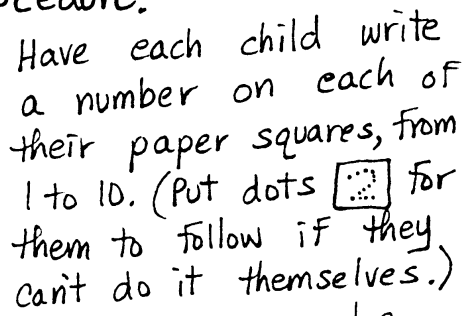 Have each child write
a number on each of
their paper squares, from
1 to 10. (Put dots 2 for
them to follow if they
can't do it themselves.)